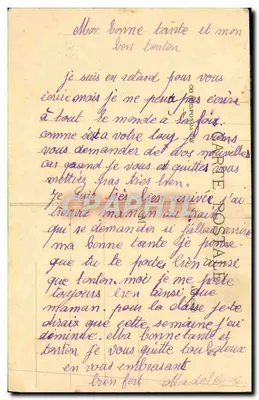 Mon bonne tante et mon
bon tonton
je suis en retard pour vous
écrire mais je ne peux pas écrire
à tout le monde à la fois
comme est a votre tour je vais
vous demander de vos nouvelles
car quand je vous ai quittés vous
n'étiez pas très bien.
Je suis très bien arrivée j'ai
trouvé maman
qui se demandait si j'allais
ma bonne tante je pense
que tu te portes bien ainsi
que tonton. moi je me porte
toujours bien ainsi que
maman. pour la classe je te
dirais que cette semaine j'ai
dimanche. Ma bonne tante et
tonton je vous quitte tous deux
en vous embrassant
bien fort Madeleine
CARTE POSTALE
CPARAMA